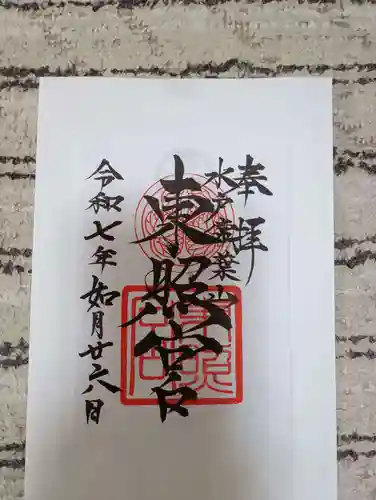 奉拝
水戸京葉山
東照宮
令和七年如月廿六日